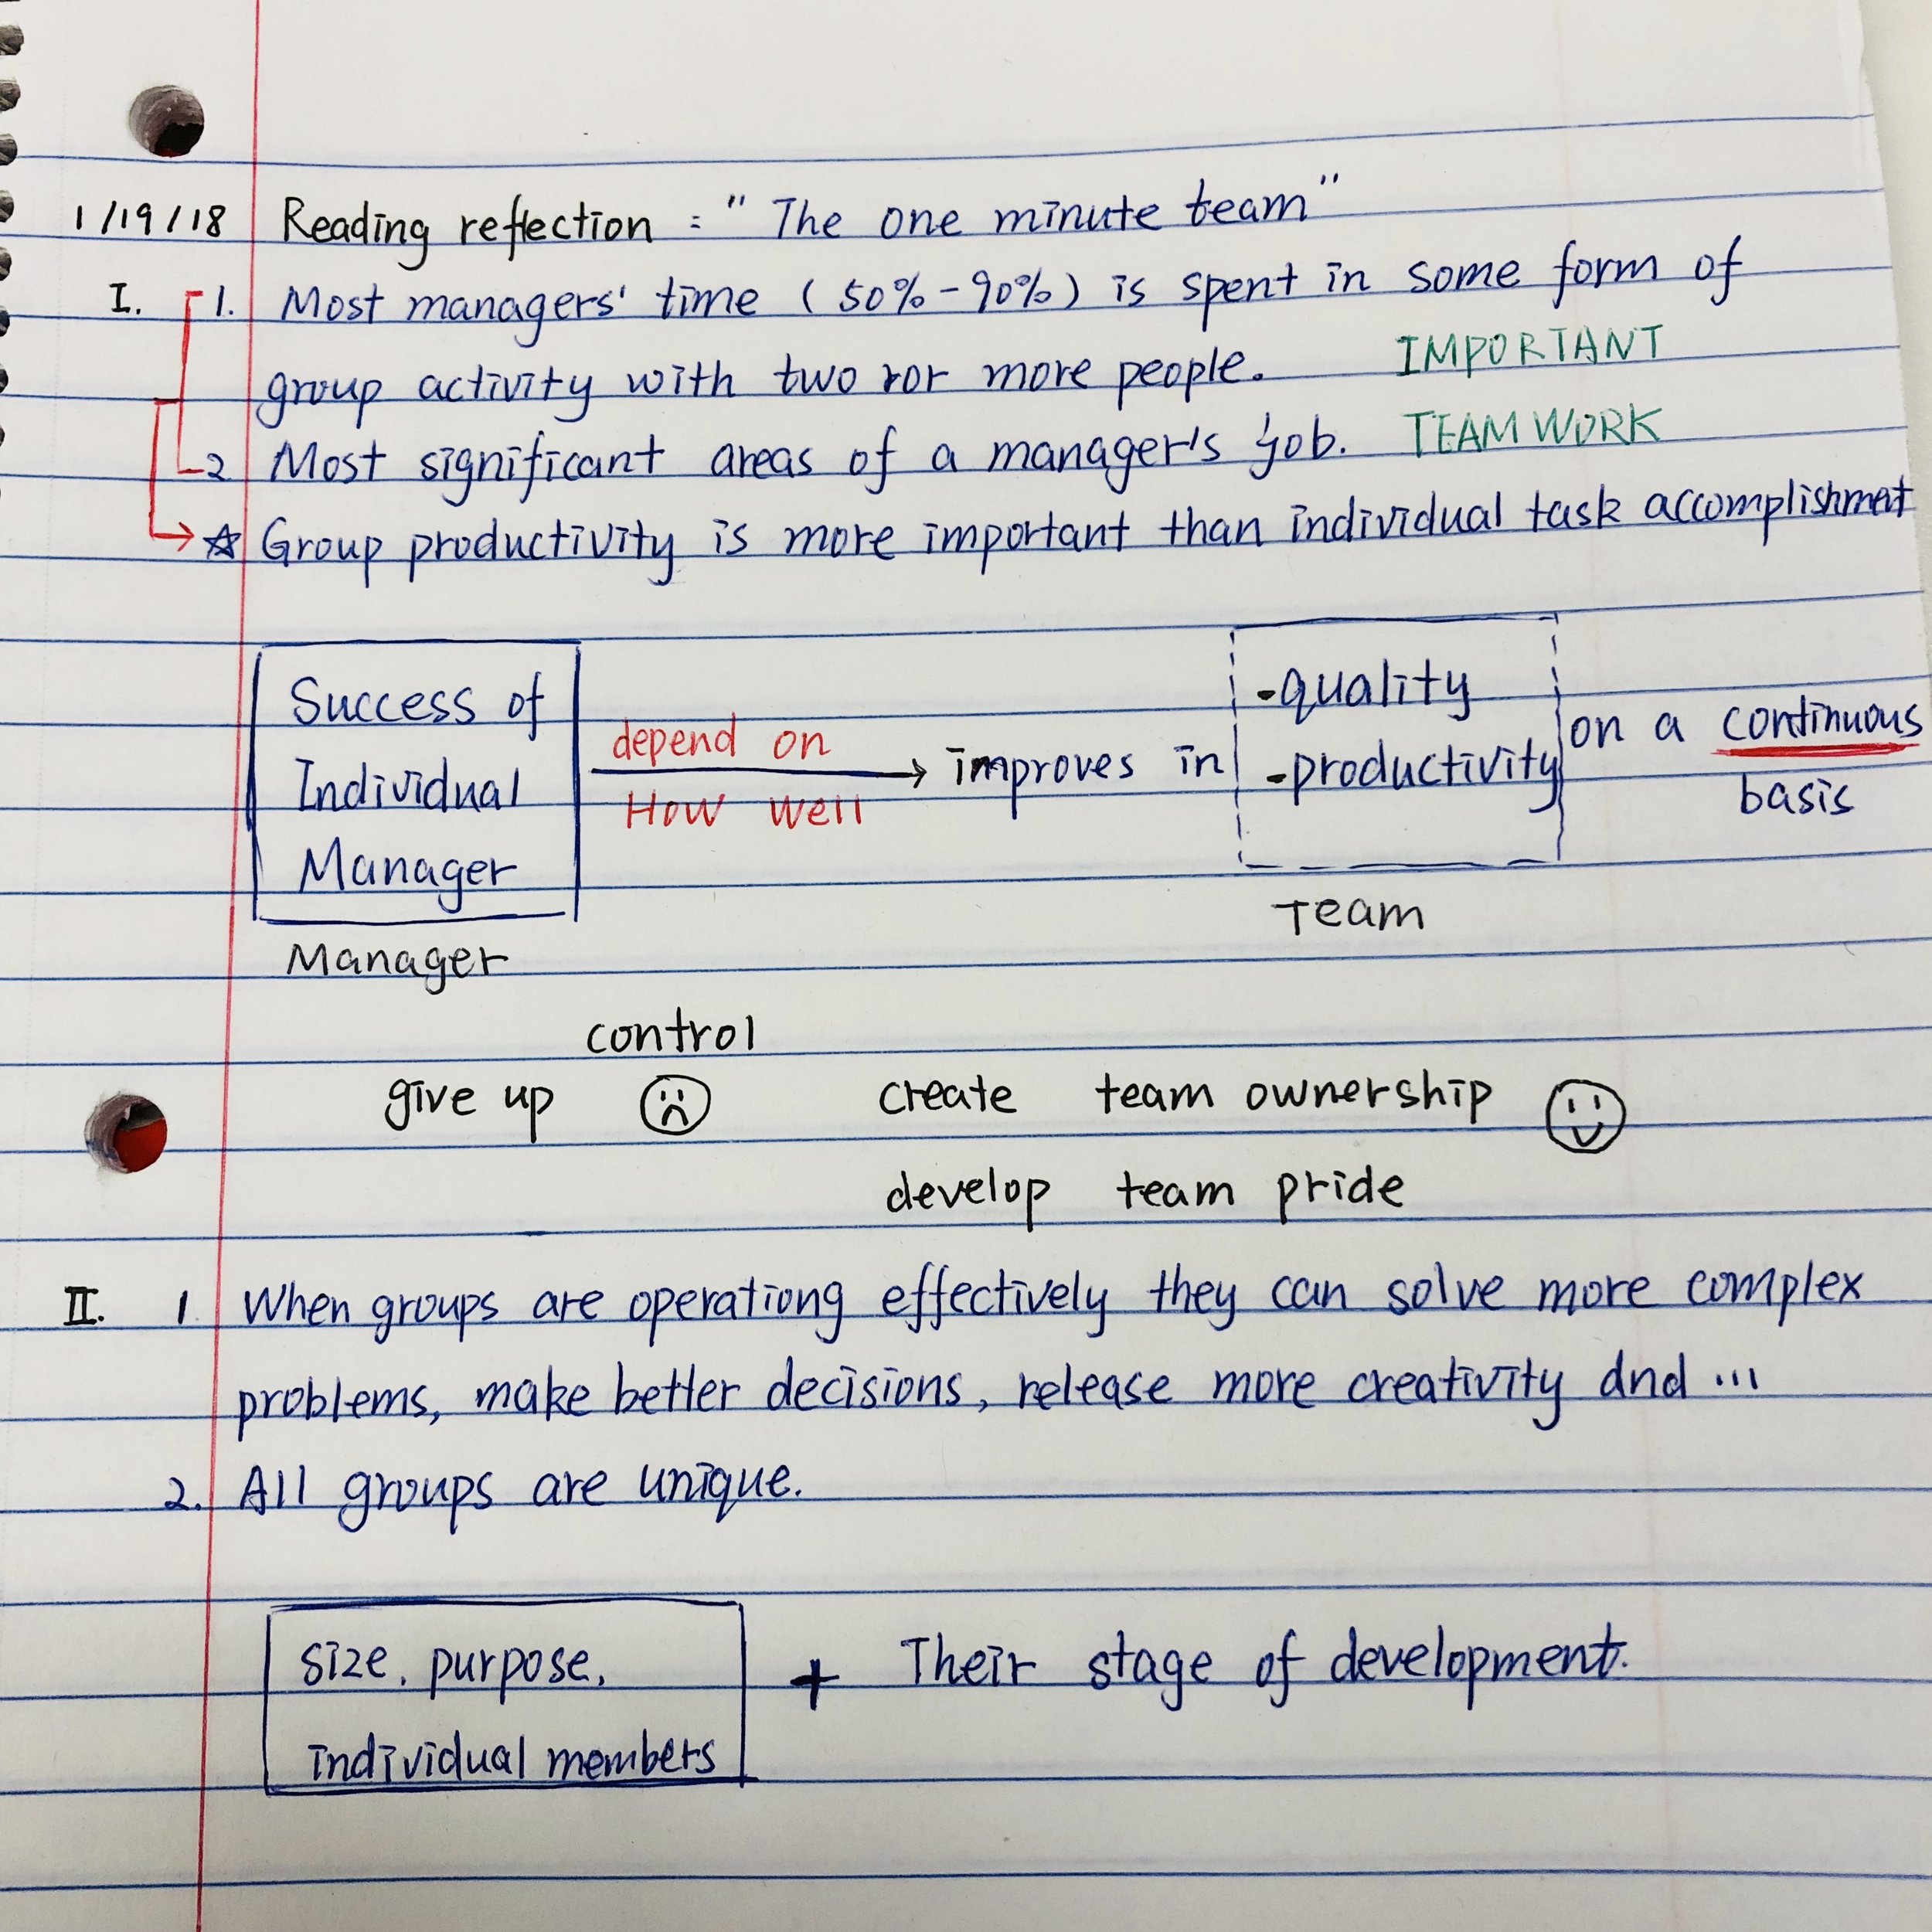 1/19/18 Reading reflection : "The one minute team"
I. 1. Most managers' time (50%-90%) is spent in some form of
group activity with two ror more people. IMPORTANT
2 Most significant areas of a manager's job. TEAM WORK
☆ Group productivity is more important than individual task accomplishment
Success of
Individual
Manager
Manager
depend on
How well
→ improves in
-quality
-productivity
Team
on a continuous
basis
control
give up ☹ create team ownership ☺
develop team pride
II. 1. When groups are operationg effectively they can solve more complex
problems, make better decisions, release more creativity and ...
2. All groups are unique.
size, purpose,
individual members
+ Their stage of development.